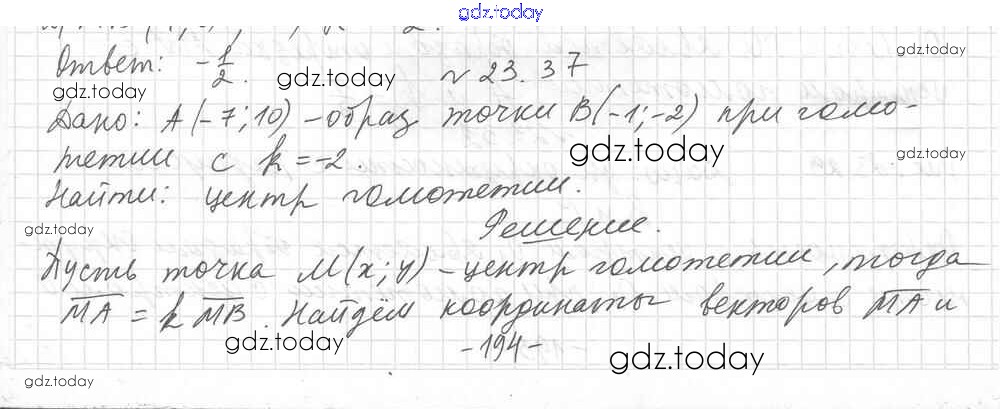 gdz.today
Ответ: -1/2.
№ 23.37
gdz.today
gdz.today
gdz.today
Дано: A(-7; 10) - образ точки B(-1; -2) при гомо-
тетии с k = -2.
gdz.today
gdz.today
Найти: центр гомотетии.
Решение.
gdz.today
Пусть точка M(x; y) - центр гомотетии, тогда
MA = k MB. Найдём координаты векторов MA и
gdz.today
- 194 -
gdz.today
gdz.today